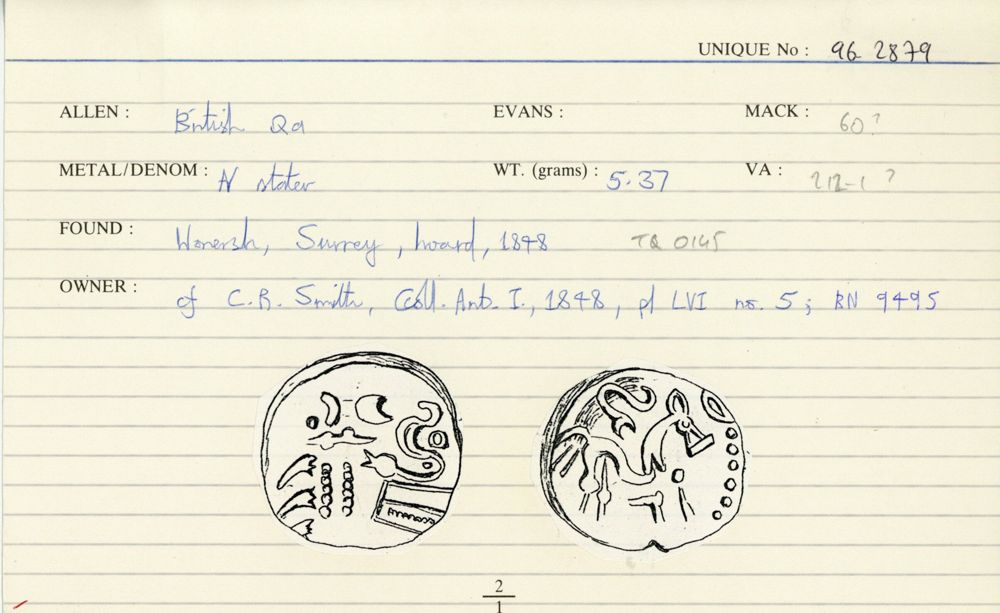 UNIQUE No : 96 2879
ALLEN : British Qa EVANS : MACK : 60?
METAL/DENOM : N stater WT. (grams) : 5.37 VA : 212-1 ?
FOUND : Wonersh, Surrey, hoard, 1848 TQ 0145
OWNER : of C.R. Smith, Coll. Ant. I., 1848, pl LVI no. 5; BN 9495
2
1